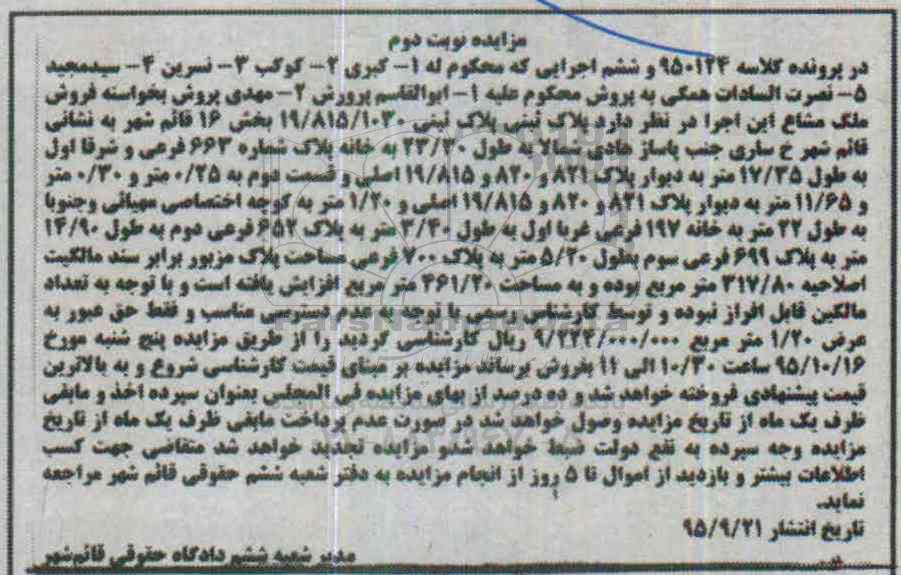 مزایده نوبت دوم
در پرونده کلاسه ۹۵۰۱۲۴ و ششم اجرایی که محکوم له ۱- کبری ۲- کوکب ۳- نسرین ۴- سیدمجید
۵- نصرت السادات همگی به پروش محکوم علیه ۱- ابوالقاسم پرورش ۲- مهدی پروش بخواسته فروش
ملک مشاع این اجرا در نظر دارد پلاک ثبتی پلاک ثبتی ۱۹/۸۱۵/۱۰۳۰ بخش ۱۶ قائم شهر به نشانی
قائم شهر خ ساری جنب پاساژ هادی شمالا به طول ۲۳/۳۰ به خانه پلاک شماره ۶۶۳ فرعی و شرقا اول
به طول ۱۷/۳۵ متر به دیوار پلاک ۸۲۱ و ۸۲۰ و ۱۹/۸۱۵ اصلی و قسمت دوم به ۰/۲۵ متر و ۰/۳۰ متر
و ۱۱/۶۵ متر به دیوار پلاک ۸۲۱ و ۸۲۰ و ۱۹/۸۱۵ اصلی و ۱/۲۰ متر به کوچه اختصاصی میهائی وجنوبا
به طول ۲۲ متر به خانه ۱۹۷ فرعی غربا اول به طول ۳/۴۰ متر به پلاک ۶۵۲ فرعی دوم به طول ۱۴/۹۰
متر به پلاک ۶۹۹ فرعی سوم بطول ۵/۲۰ متر به پلاک ۷۰۰ فرعی مساحت پلاک مزبور برابر سند مالکیت
اصلاحیه ۳۱۷/۸۰ متر مربع بوده و به مساحت ۳۶۱/۲۰ متر مربع افزایش یافته است و با توجه به تعداد
مالکین قابل افراز نبوده و توسط کارشناس رسمی با توجه به عدم دسترسی مناسب و فقط حق عبور به
عرض ۱/۲۰ متر مربع ۹/۲۲۳/۰۰۰/۰۰۰ ریال کارشناسی گردید را از طریق مزایده پنج شنبه مورخ
۹۵/۱۰/۱۶ ساعت ۱۰/۳۰ الی ۱۱ بفروش برساند مزایده بر مبنای قیمت کارشناسی شروع و به بالاترین
قیمت پیشنهادی فروخته خواهد شد و ده درصد از بهای مزایده فی المجلس بعنوان سپرده اخذ و مابقی
ظرف یک ماه از تاریخ مزایده وصول خواهد شد در صورت عدم پرداخت مابقی ظرف یک ماه از تاریخ
مزایده وجه سپرده به نفع دولت ضبط خواهد شدو مزایده تجدید خواهد شد متقاضی جهت کسب
اطلاعات بیشتر و بازدید از اموال تا ۵ روز از انجام مزایده به دفتر شعبه ششم حقوقی قائم شهر مراجعه
نماید.
تاریخ انتشار ۹۵/۹/۲۱
مدیر شعبه ششم دادگاه حقوقی قائم‌شهر
ParsNamadData